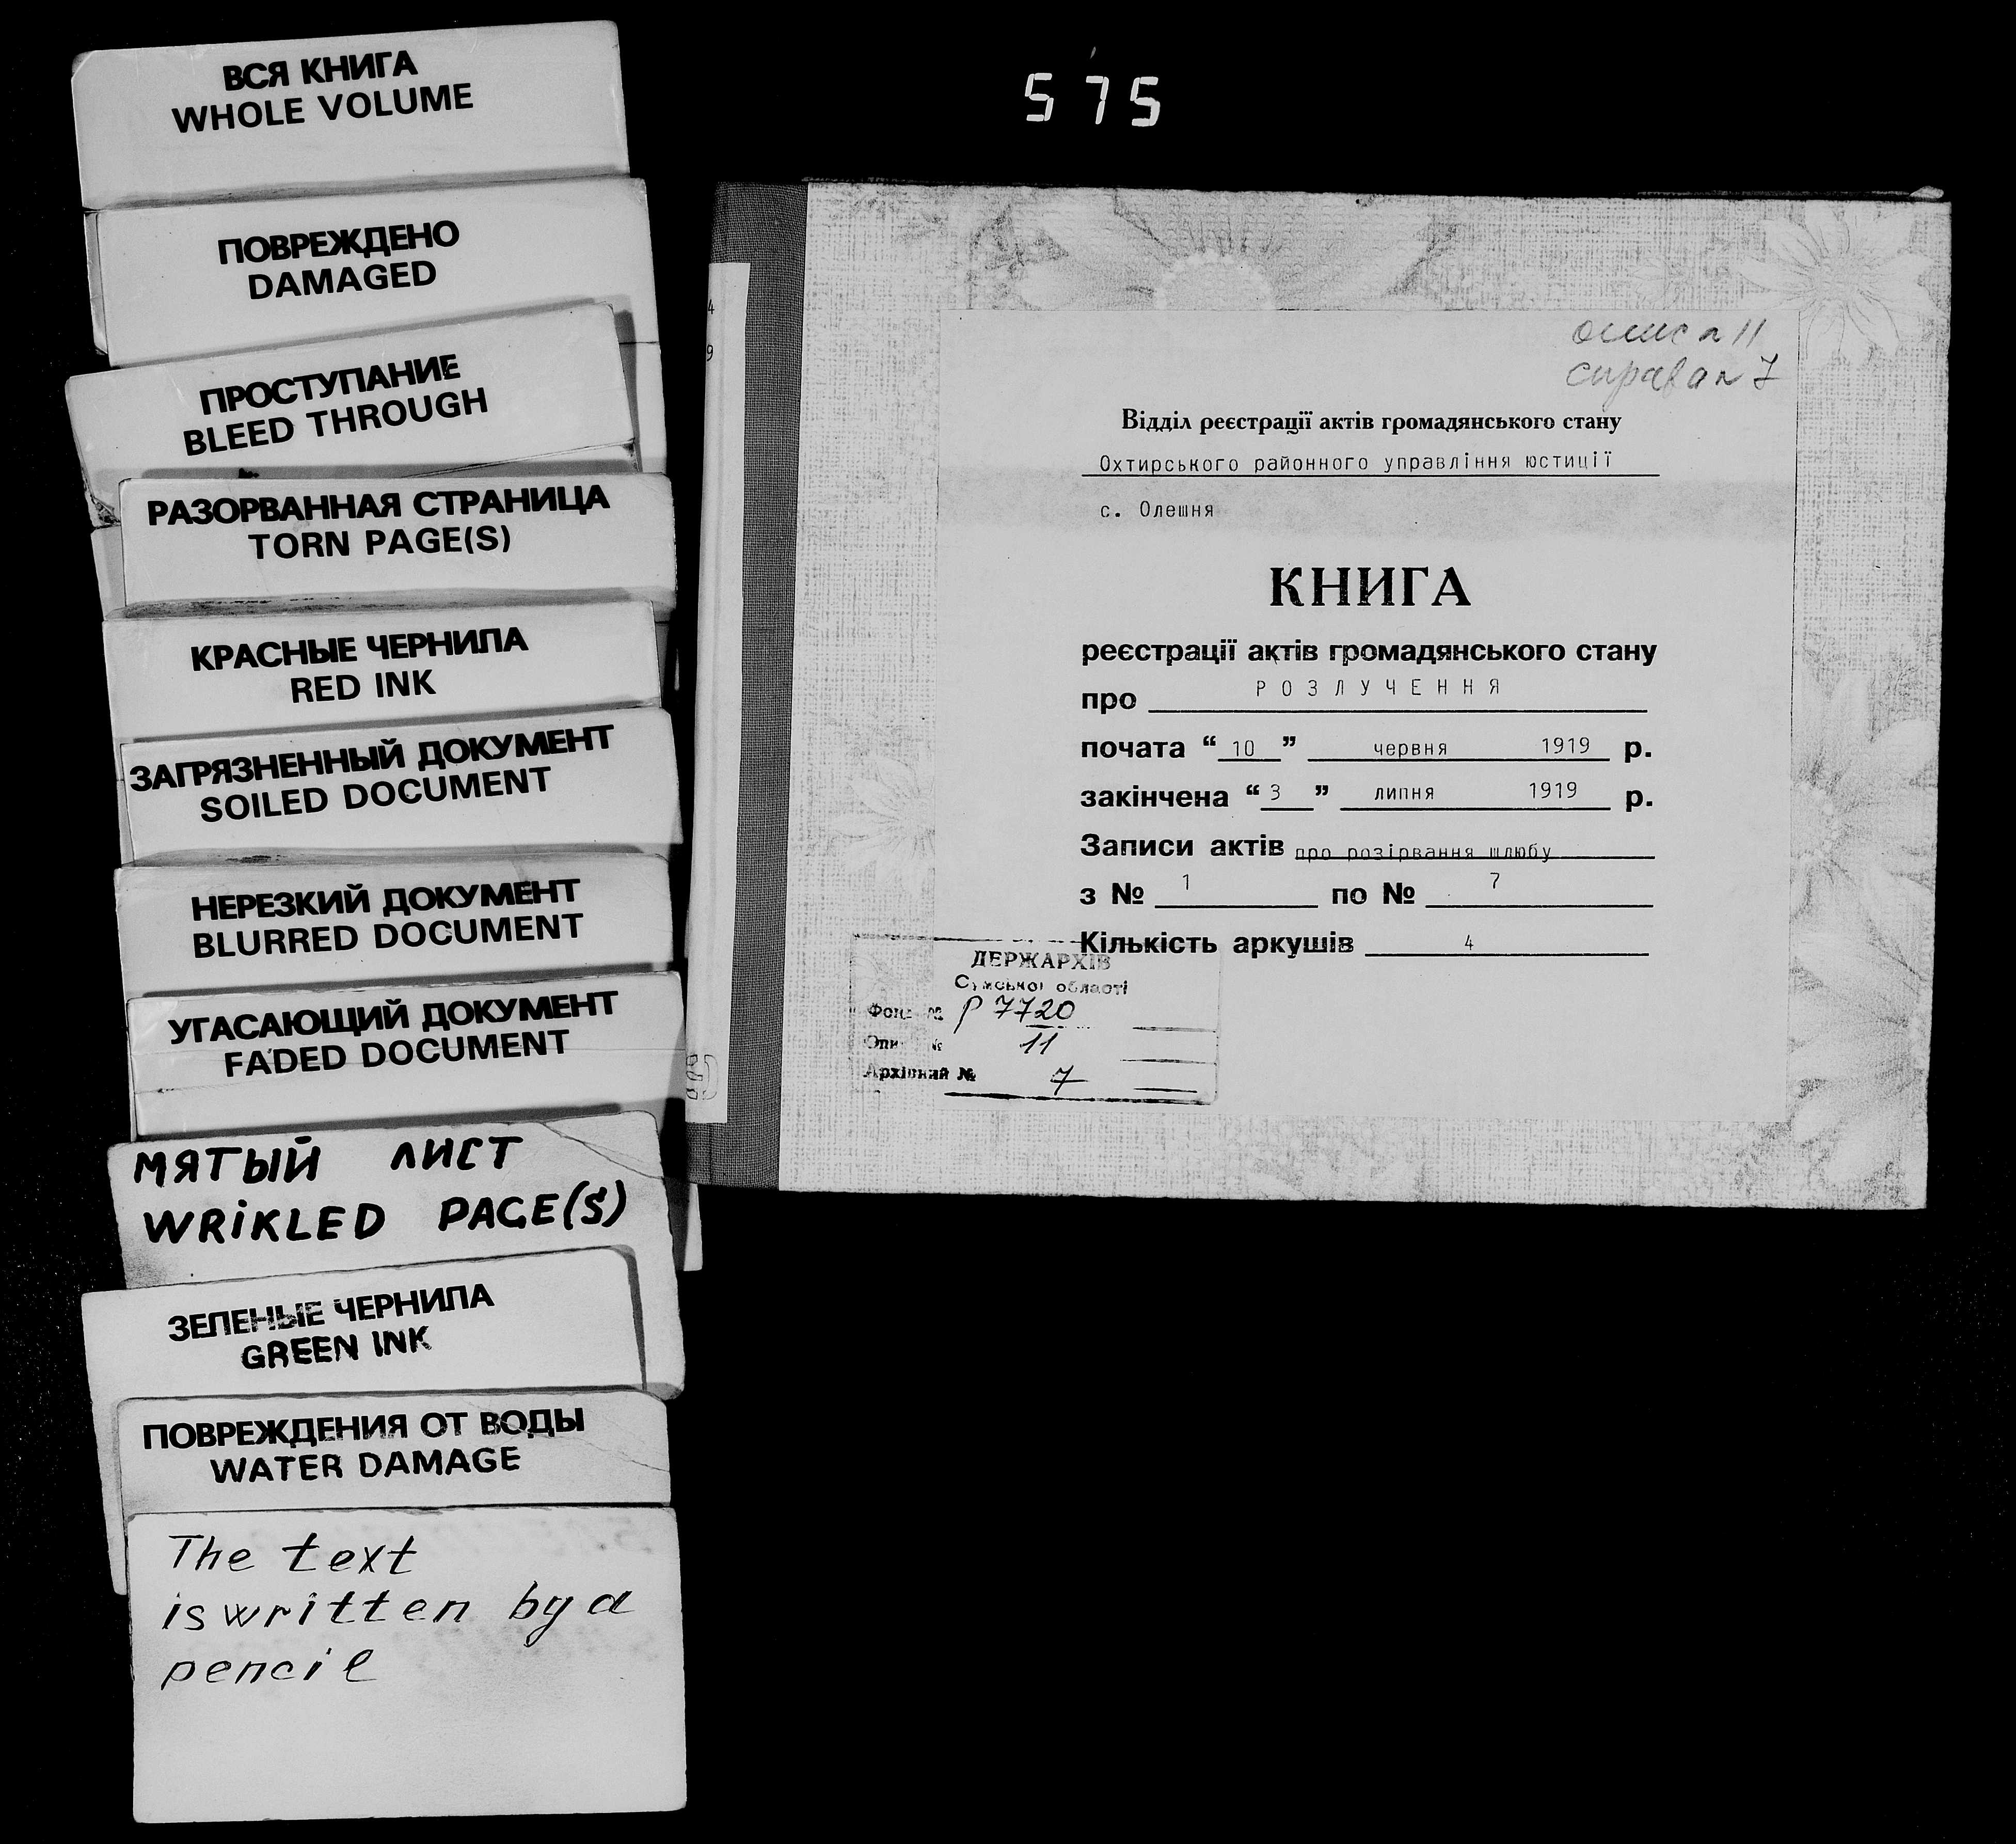 ВСЯ КНИГА
WHOLE VOLUME
ПОВРЕЖДЕНО
DAMAGED
ПРОСТУПАНИЕ
BLEED THROUGH
РАЗОРВАННАЯ СТРАНИЦА
TORN PAGE(S)
КРАСНЫЕ ЧЕРНИЛА
RED INK
ЗАГРЯЗНЕННЫЙ ДОКУМЕНТ
SOILED DOCUMENT
НЕРЕЗКИЙ ДОКУМЕНТ
BLURRED DOCUMENT
УГАСАЮЩИЙ ДОКУМЕНТ
FADED DOCUMENT
МЯТЫЙ ЛИСТ
WRIKLED PAGE(S)
ЗЕЛЕНЫЕ ЧЕРНИЛА
GREEN INK
ПОВРЕЖДЕНИЯ ОТ ВОДЫ
WATER DAMAGE
The text
is written by a
pencil
575
4
9
опис n 11
справа n 7
Відділ реєстрації актів громадянського стану
Охтирського районного управління юстиції
с. Олешня
КНИГА
реєстрації актів громадянського стану
про РОЗЛУЧЕННЯ
почата “ 10 ” червня 1919 р.
закінчена “ 3 ” липня 1919 р.
Записи актів про розірвання шлюбу
з № 1 по № 7
Кількість аркушів 4
ДЕРЖАРХІВ
Сумської області
Фонд № Р 7720
Опис № 11
Архівний № 7